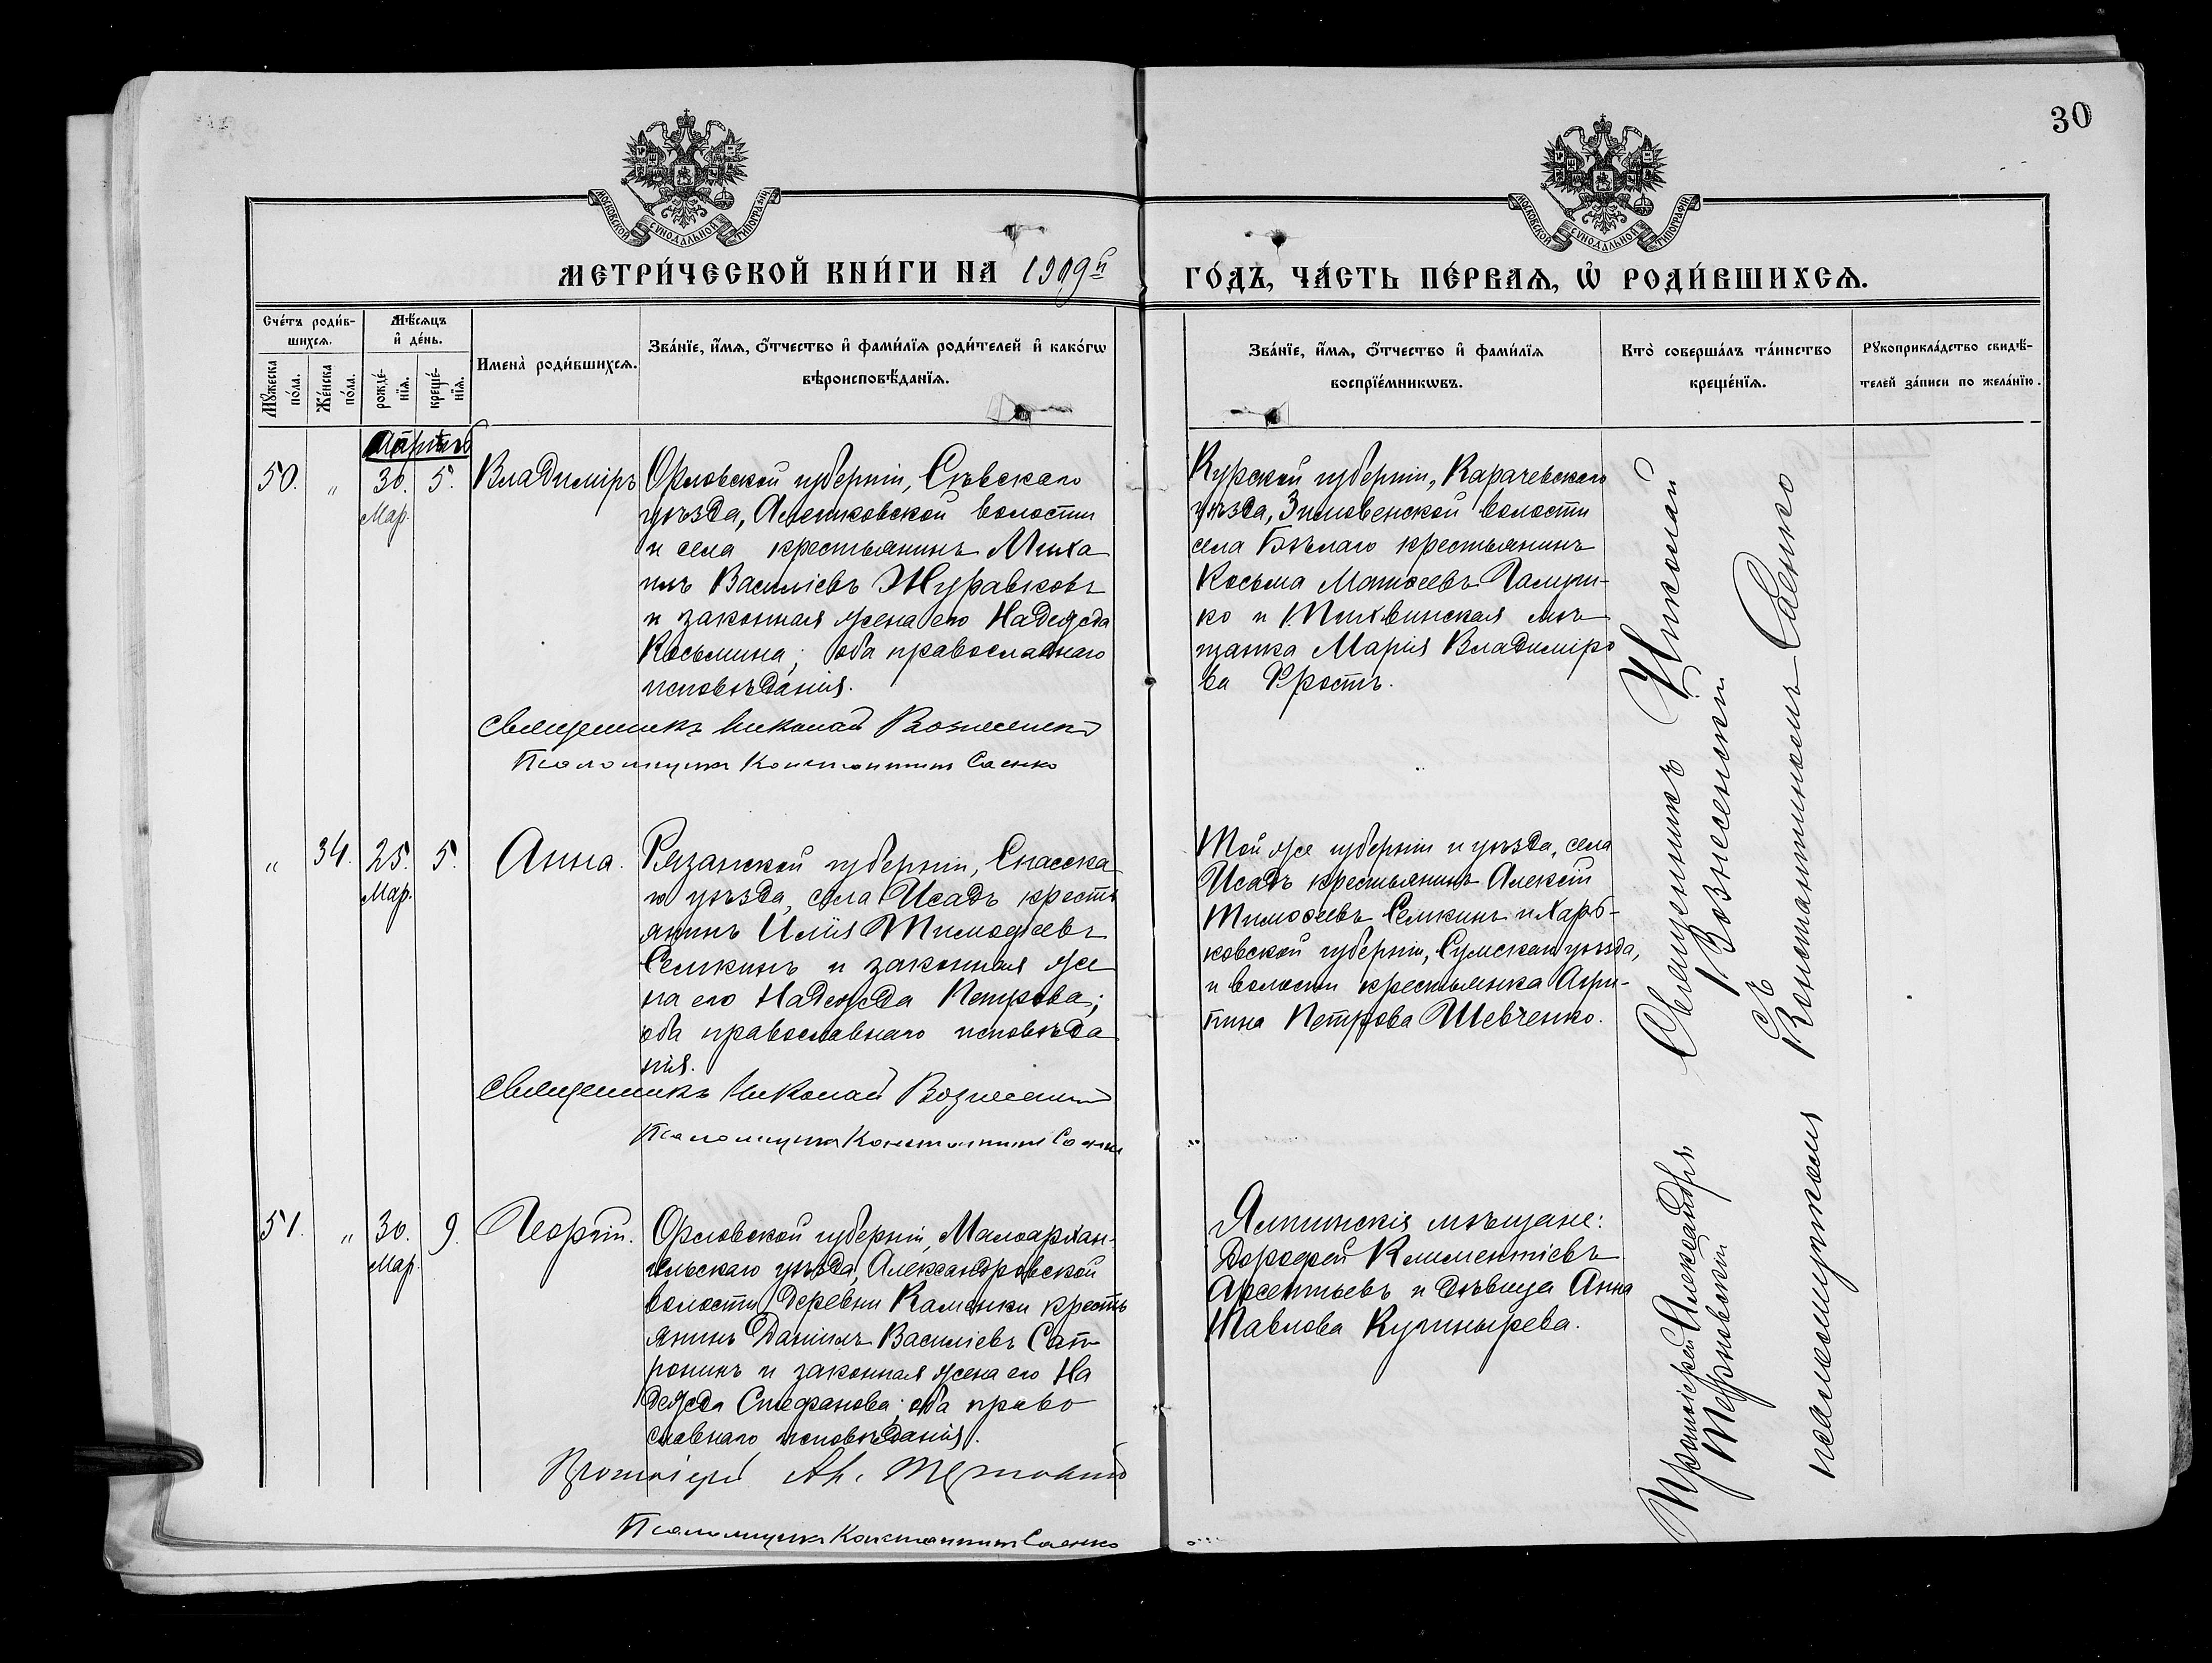 30
МОСКОВСКОЙ СѴНОДАЛЬНОЙ ТИПОГРАФІИ
МОСКОВСКОЙ СѴНОДАЛЬНОЙ ТИПОГРАФІИ
МЕТРИ́ЧЕСКОЙ КНИ́ГИ НА 1909й ГО́ДЪ, ЧА́СТЬ ПЕ́РВАЯ, Ѡ РОДИ́ВШИХСЯ.
Сче́тъ роди́в-
шихся.
Мѣ́сяцъ
и҆ де́нь.
Мꙋ́жеска
по́ла.
Же́нска
по́ла.
рожде́-
нїя.
креще́-
нїя.
Имена̀ роди́вшихся.
Зва́нїе, и҆́мя, ѻ҆́тчество и҆ фами́лїя роди́телей и҆ како́гѡ
вѣроисповѣ́данїя.
Зва́нїе, и҆́мя, ѻ҆́тчество и҆ фами́лїя
воспрїе́мникѡвъ.
Кто̀ соверша́лъ та́инство
креще́нїя.
Рꙋкоприкла́дство свидѣ́-
телей за́писи по жела́нїю.
50. " 30. 5. Владиміръ
Мар.
Орловской губерніи, Сѣвскаго
уѣзда, Алешковской волости
и села крестьянинъ Миха
илъ Василіевъ Журавковъ
и законная жена его Надежда
Косьмина; оба православнаго
исповѣданія.
Священникъ Николай Вознесенскій
Псаломщикъ Константинъ Саенко
Курской губерніи, Карачевскаго
уѣзда, Зимовенской волости
села Бѣлаго крестьянинъ
Косьма Матѳеевъ Галуш-
ко и Тихвинская мѣ
щанка Марія Владиміро
ва Фростъ.
" 34. 25. 5. Анна.
Мар.
Рязанской губерніи, Спасска
го уѣзда, села Исадъ кресть
янинъ Илія Тимоѳеевъ
Семкинъ и законная же
на его Надежда Петрова;
оба православнаго исповѣда
нія.
Священникъ Николай Вознесенскій
Псаломщикъ Константинъ Саенко
Той же губерніи и уѣзда, села
Исадъ крестьянинъ Алексѣй
Тимоѳеевъ Семкинъ и Харь-
ковской губерніи, Сумскаго уѣзда,
и волости крестьянка Агри-
пина Петрова Шевченко.
51. " 30. 9. Георгій.
Мар.
Орловской губерніи, Малоархан-
гельскаго уѣзда, Александровской
волости деревни Каменки кресть
янинъ Даніилъ Василіевъ Сап-
ронинъ и законная жена его На
дежда Стефанова; оба право
славнаго исповѣданія.
Протоіерей Ал. Терновскій
Псаломщикъ Константинъ Саенко
Ялтинскія мѣщане:
Дорофей Климентіевъ
Арсентьевъ и дѣвица Анна
Павлова
Священникъ Николай
Вознесенскій
съ
псаломщикомъ Константиномъ Саенко
Протоіерей Александръ
Терновскій